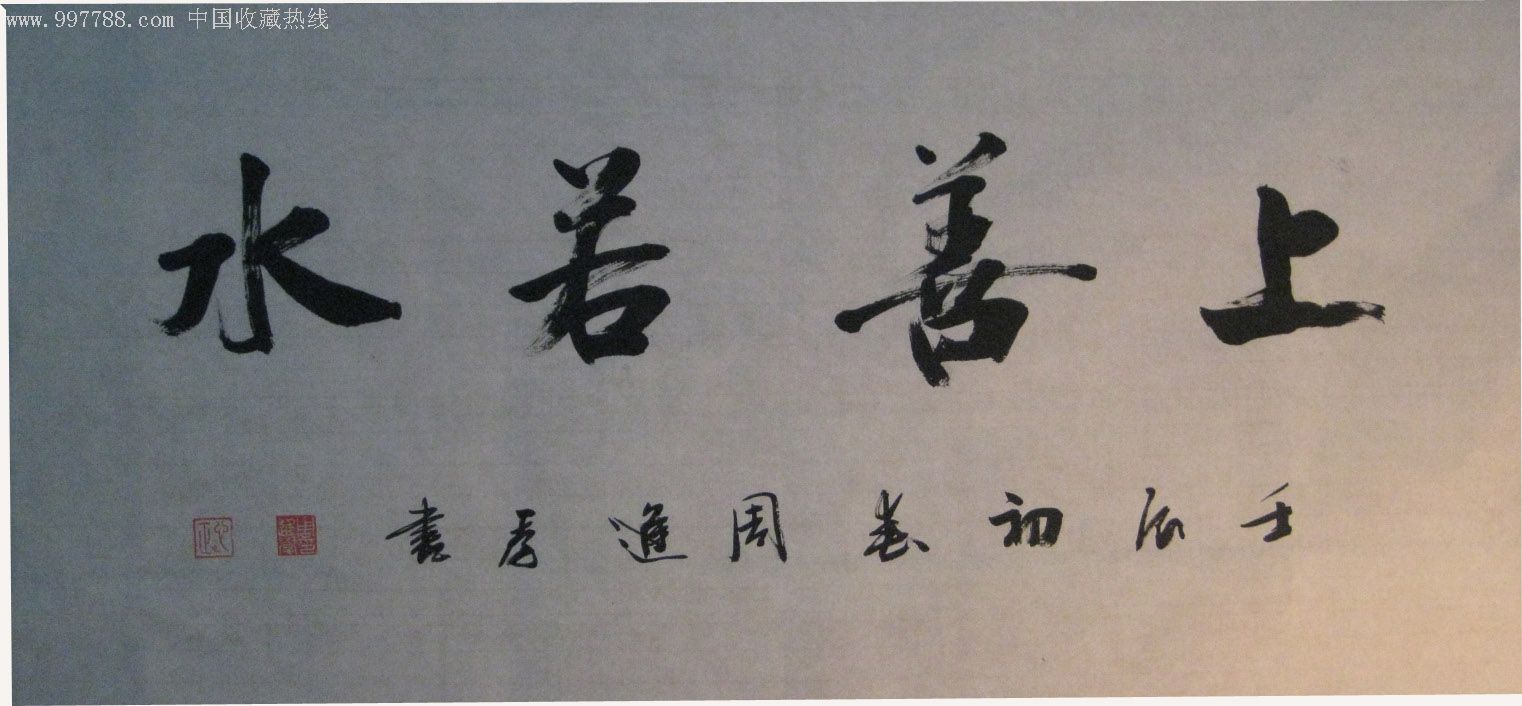 www.997788.com 中国收藏热线
上善若水
壬辰初春周進書